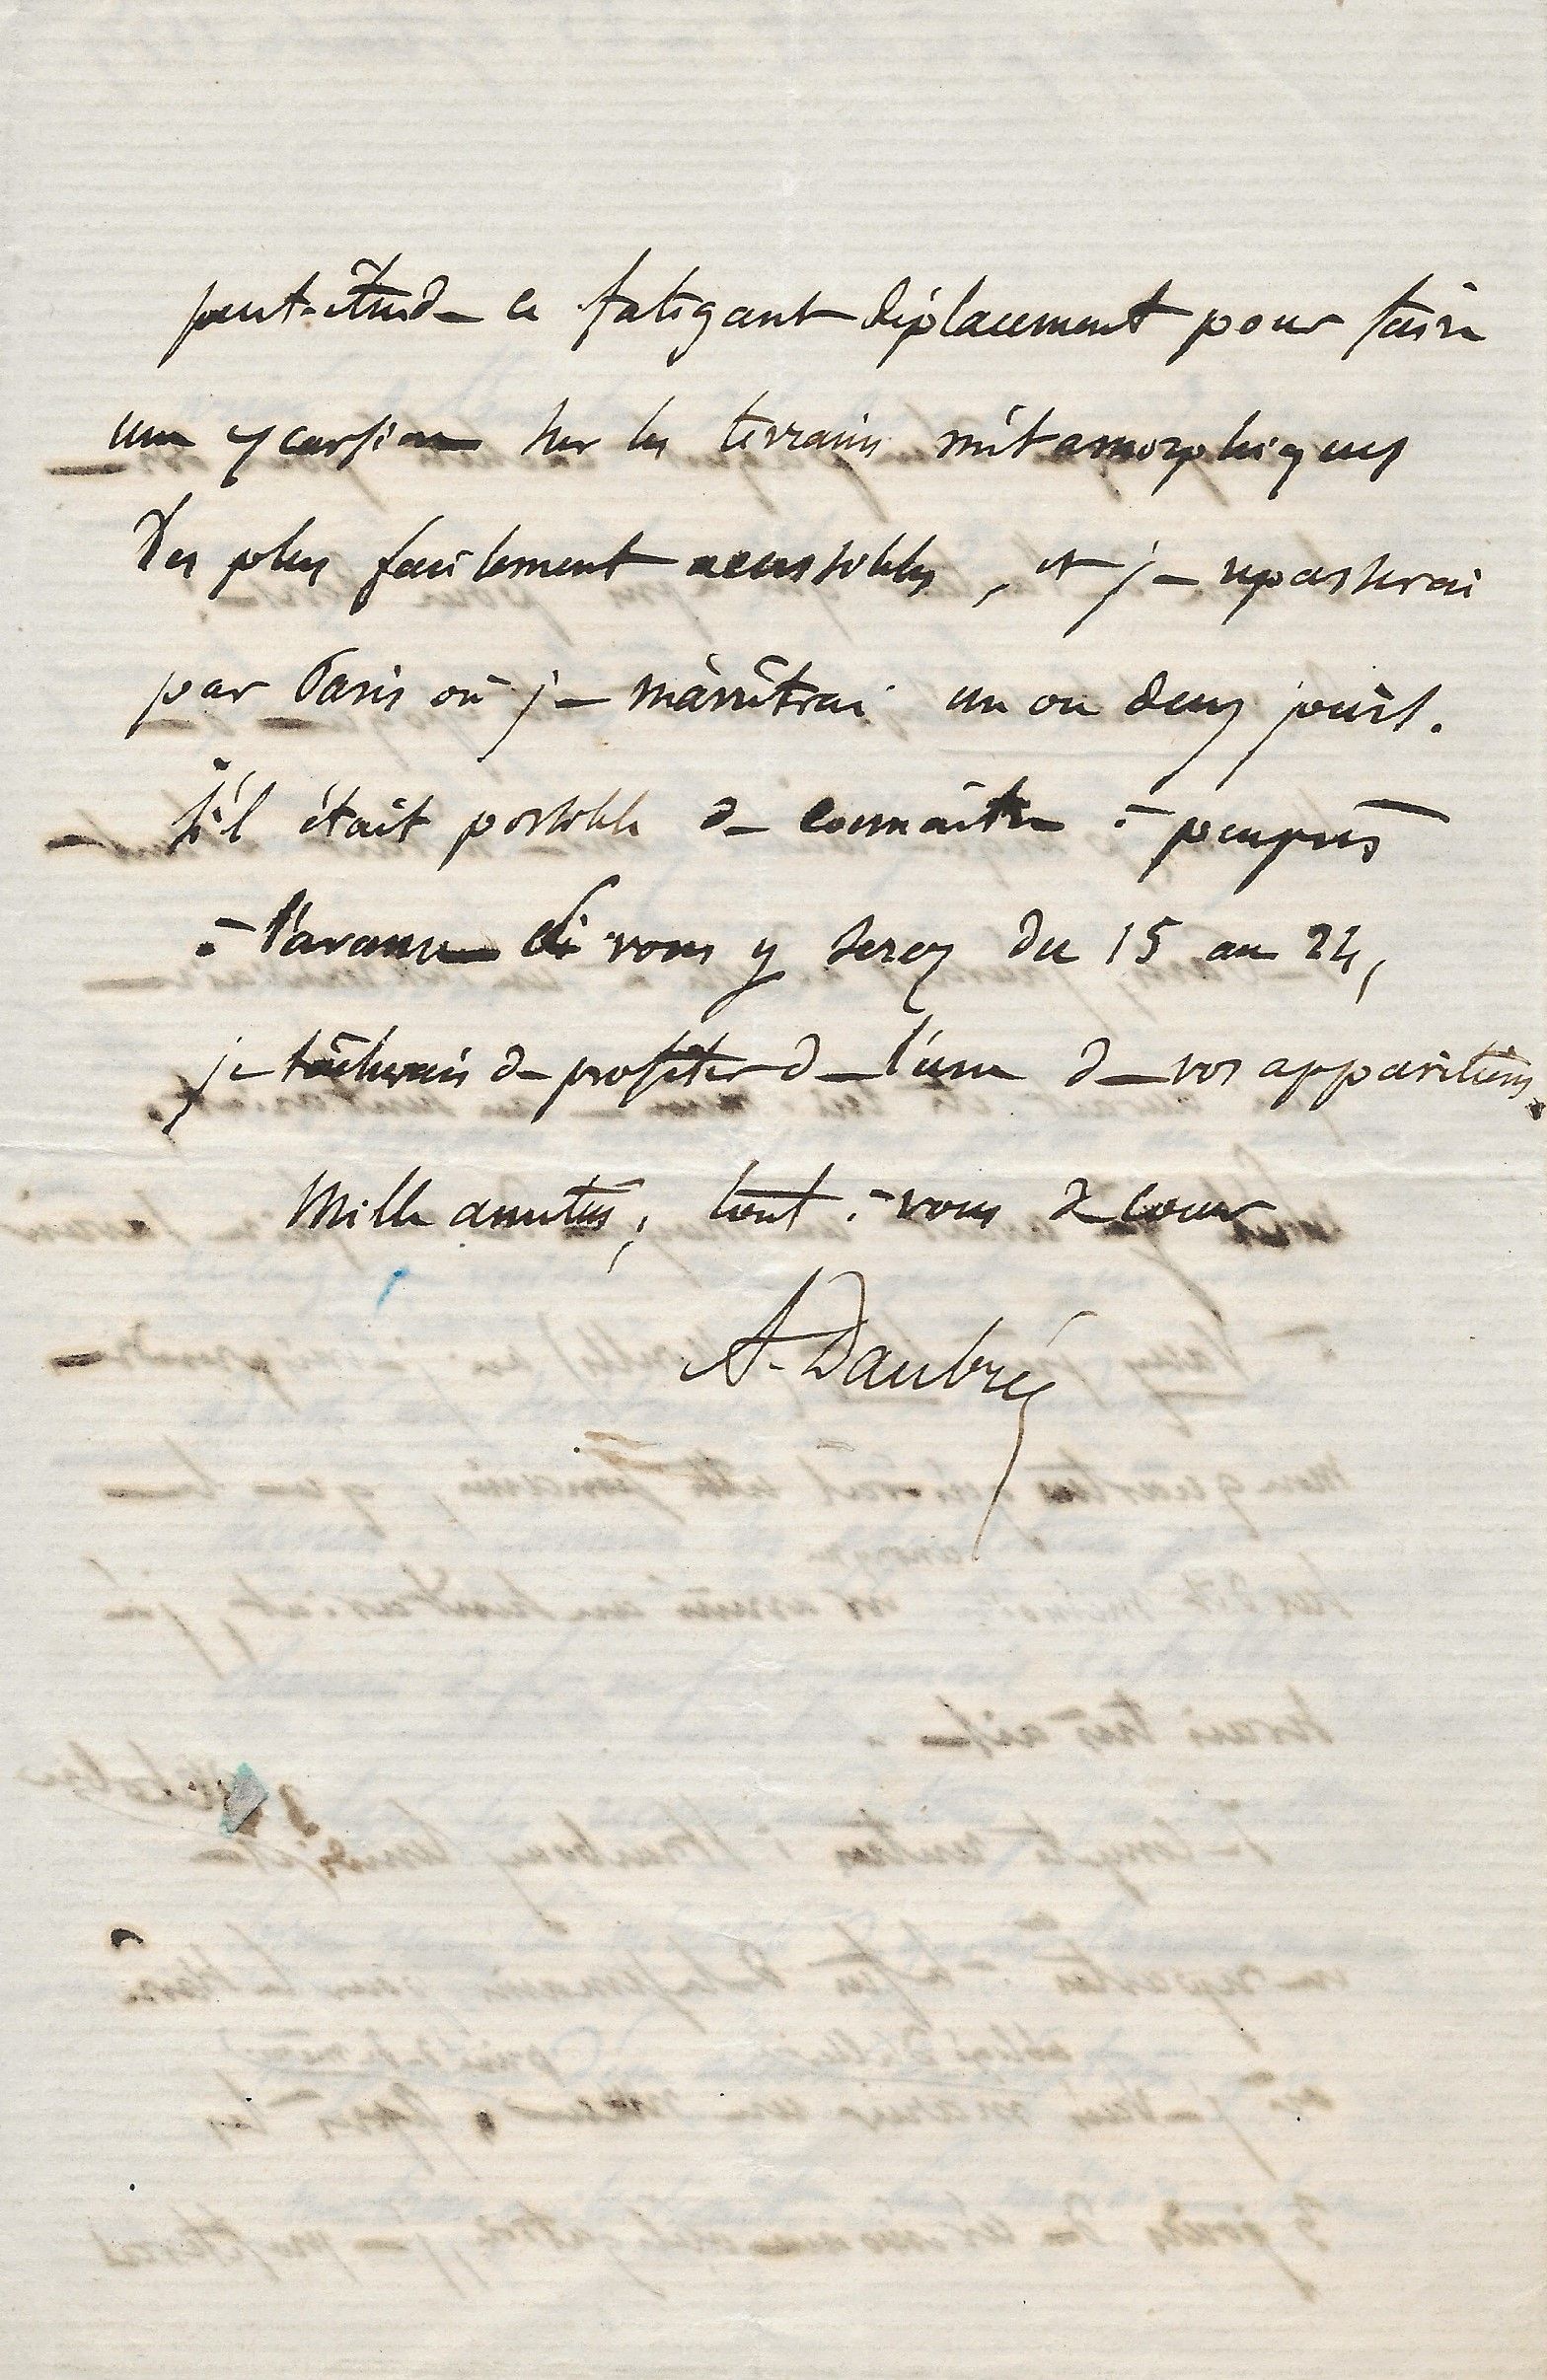 peut-être de ce fatigant déplacement pour faire
une excursion sur les terrains métamorphiques
les plus facilement accessibles, et je repasserai
par Paris où je m'arrêterai un ou deux jours.
S'il était possible de connaître à peu près
à l'avance si vous y serez du 15 au 24,
je tâcherais de profiter de l'une de vos apparitions.
Mille amitiés, tout à vous de cœur
A. Daubrée